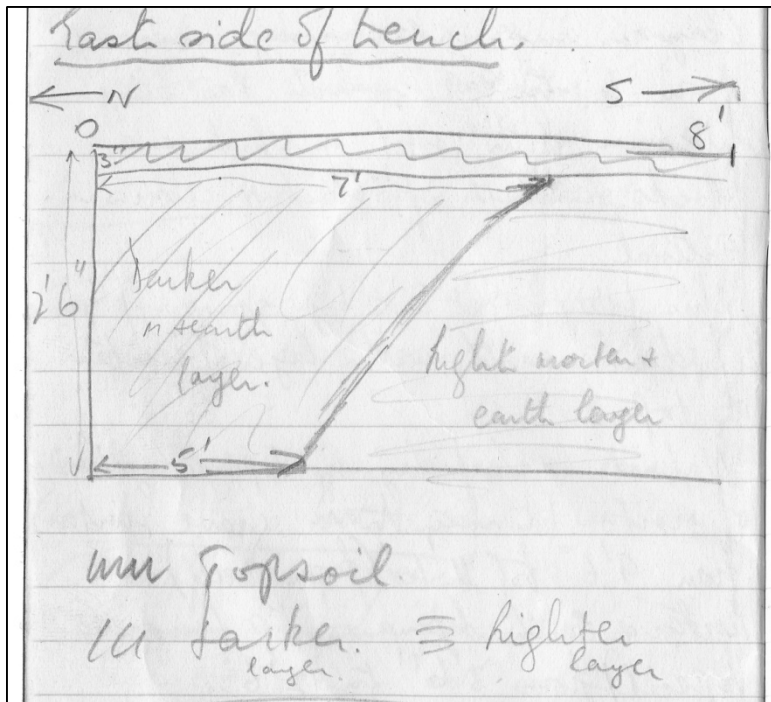 East side of trench.
← N S →
0 8'
3"
7'
2'6"
Darker
m + earth
layer.
Light mortar +
earth layer
5'
Topsoil.
Darker Lighter
layer. layer